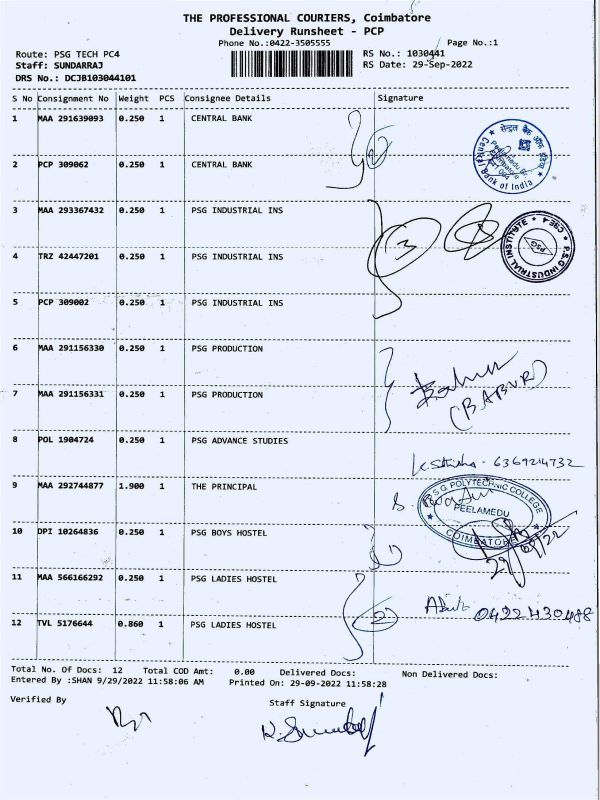 THE PROFESSIONAL COURIERS, Coimbatore
Delivery Runsheet - PCP
Phone No.:0422-3505555 Page No.:1
Route: PSG TECH PC4 RS No.: 1030441
Staff: SUNDARRAJ RS Date: 29-Sep-2022
DRS No.: DCJB103044101
S No Consignment No Weight PCS Consignee Details Signature
1 MAA 291639093 0.250 1 CENTRAL BANK
2 PCP 309062 0.250 1 CENTRAL BANK
2
सेन्ट्रल बैंक ऑफ इंडिया
Central Bank of India
3 MAA 293367432 0.250 1 PSG INDUSTRIAL INS
4 TRZ 42447201 0.250 1 PSG INDUSTRIAL INS
5 PCP 309002 0.250 1 PSG INDUSTRIAL INS
3
P.S.G INDUSTRIAL INSTITUTE
PSG
6 MAA 291156330 0.250 1 PSG PRODUCTION
7 MAA 291156331 0.250 1 PSG PRODUCTION
(BABUR)
8 POL 1904724 0.250 1 PSG ADVANCE STUDIES
6369214732
9 MAA 292744877 1.900 1 THE PRINCIPAL
P.S.G. POLYTECHNIC COLLEGE
PEELAMEDU
COIMBATORE
10 DPI 10264836 0.250 1 PSG BOYS HOSTEL
29/09/22
11 MAA 566166292 0.250 1 PSG LADIES HOSTEL
12 TVL 5176644 0.860 1 PSG LADIES HOSTEL
2
Total No. Of Docs: 12 Total COD Amt: 0.00 Delivered Docs: Non Delivered Docs:
Entered By :SHAN 9/29/2022 11:58:06 AM Printed On: 29-09-2022 11:58:28
Verified By Staff Signature